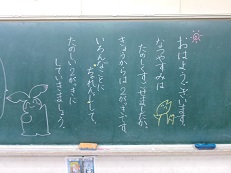 おはようございます。
なつやすみは
たのしくすごせましたか。
きょうから2がっきです。
いろんなことに
ちょうせんして、
たのしい2がっきに
していきましょう。